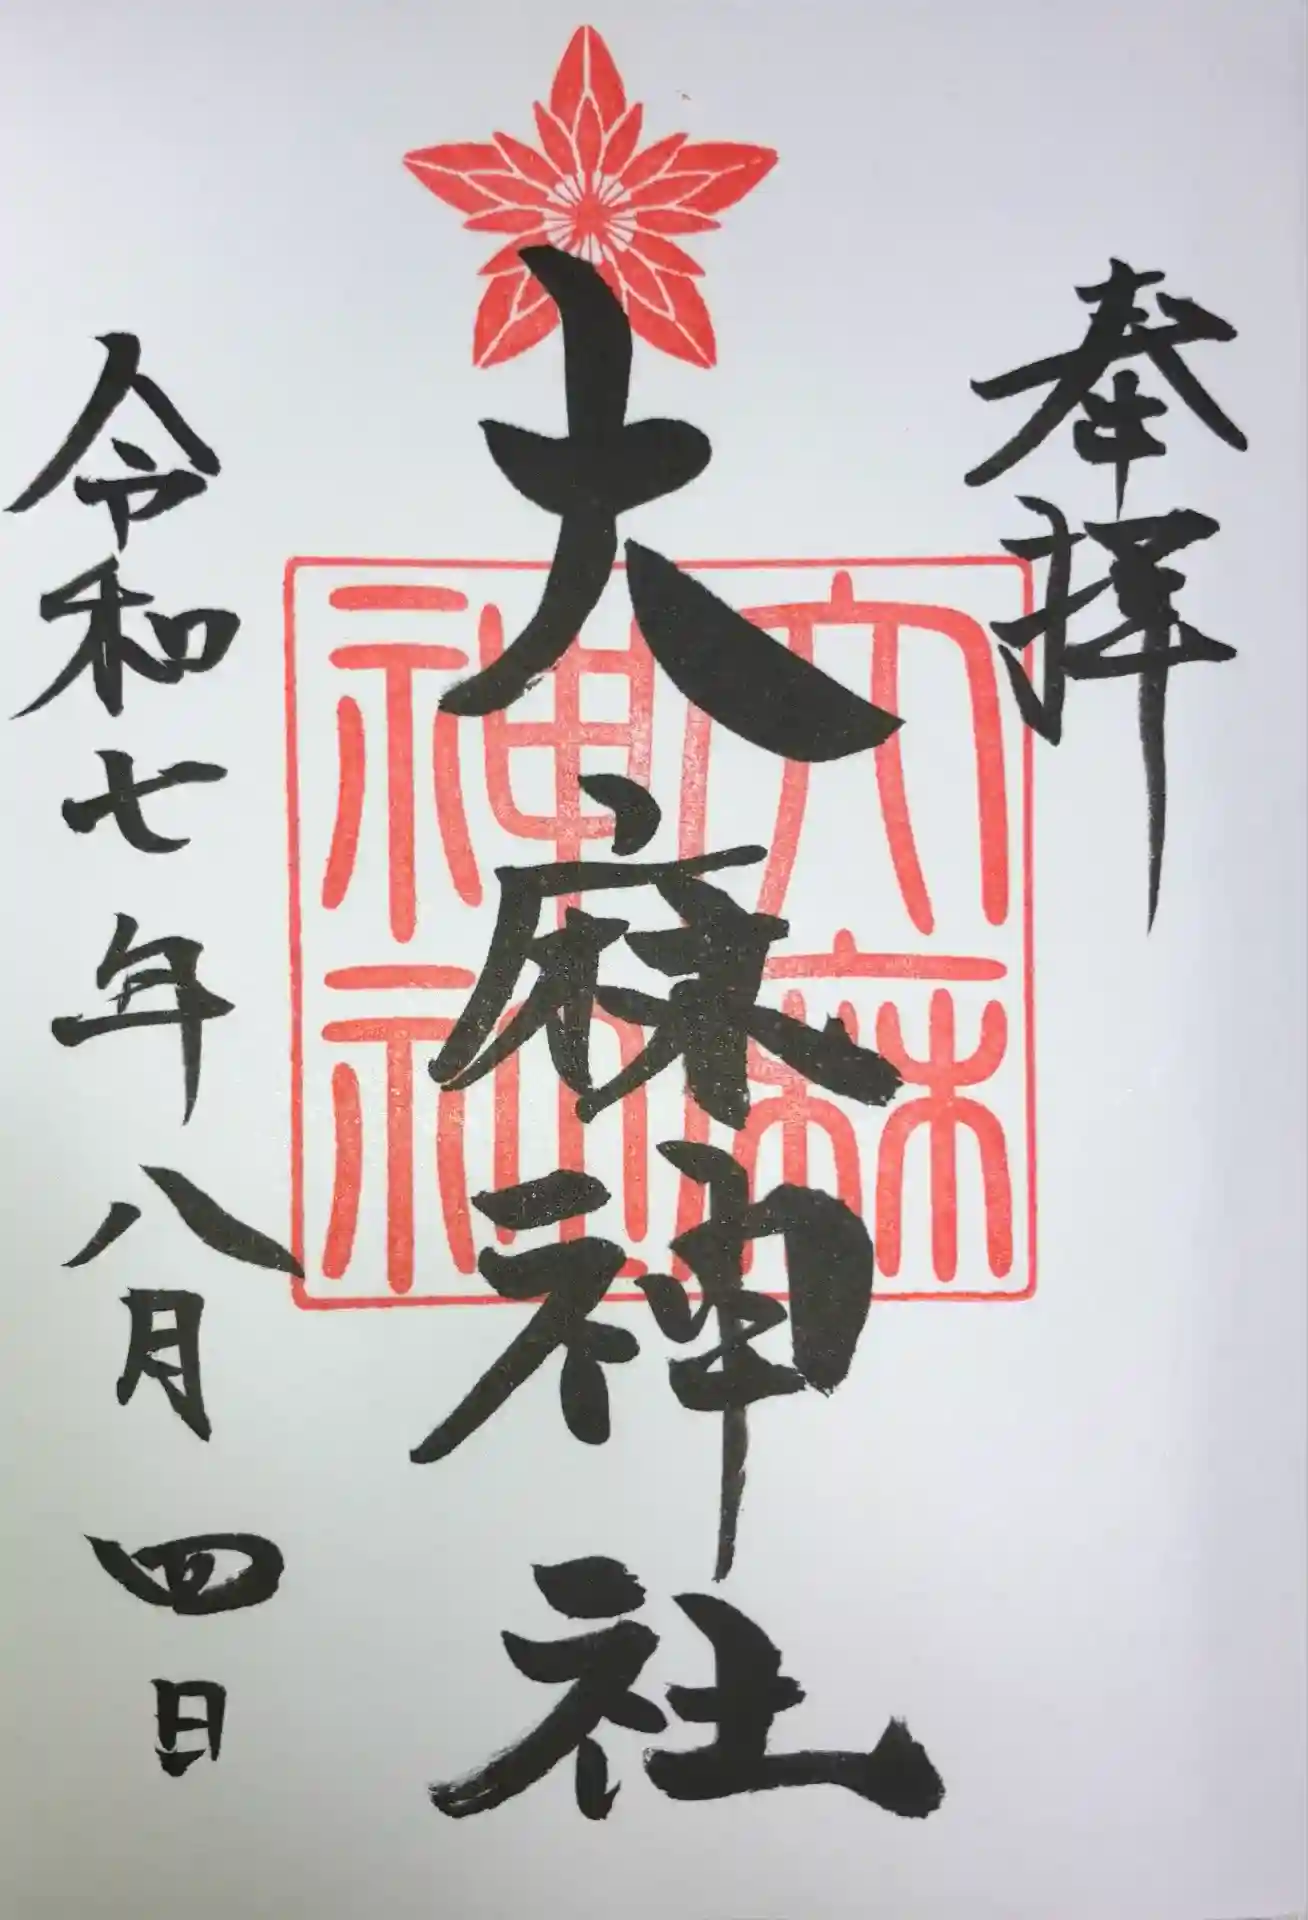 奉拝
大麻神社
大麻
神社
令和七年八月四日